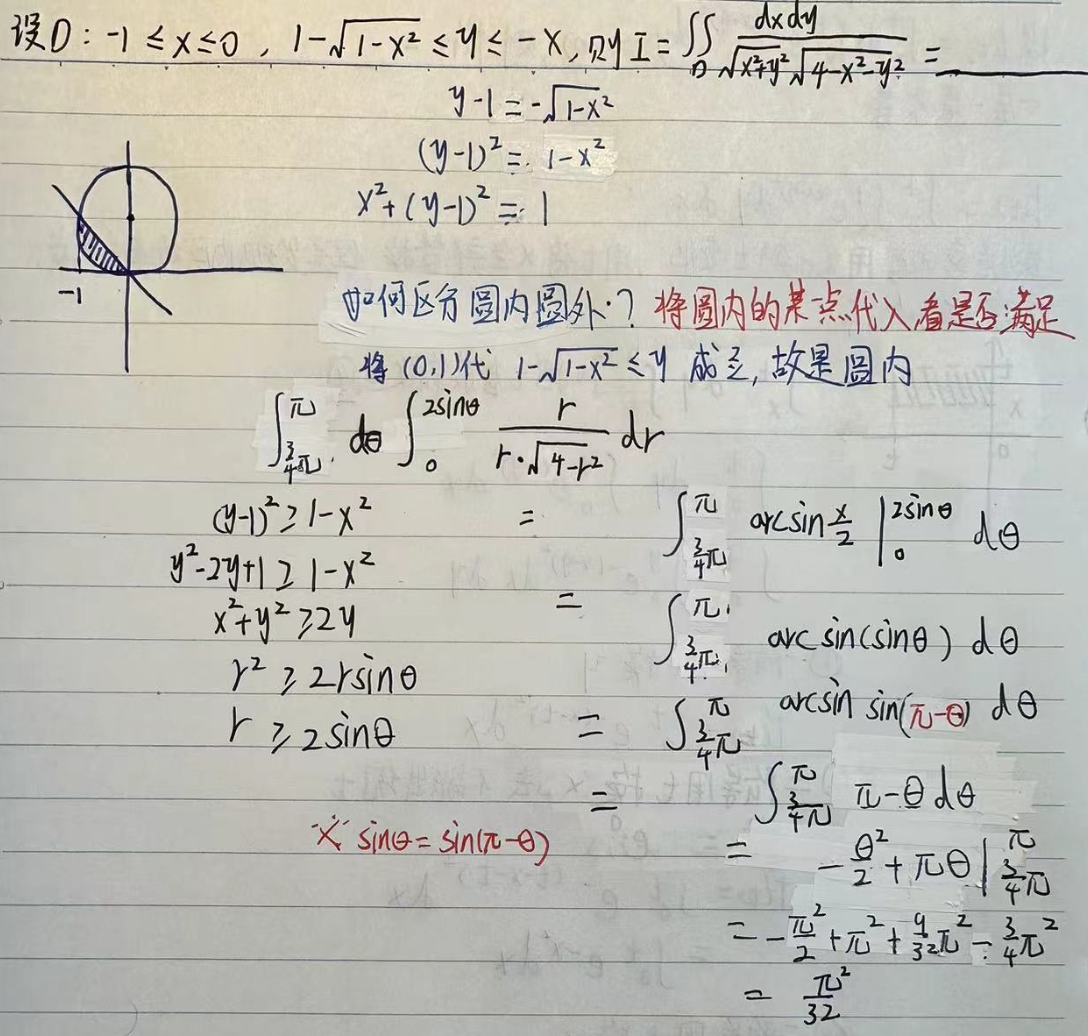 设D: -1 ≤ x ≤ 0, 1-√(1-x²) ≤ y ≤ -x, 则 I = ∬_D dxdy / (√(x²+y²) √(4-x²-y²)) = ______
y-1 = -√(1-x²)
(y-1)² = 1-x²
x²+(y-1)² = 1
-1
如何区分圆内圆外? 将圆内的某点代入看是否满足
将(0,1)代 1-√(1-x²) ≤ y 成立, 故是圆内
∫_{3/4π}^{π} dθ ∫_0^{2sinθ} r / (r·√(4-r²)) dr
(y-1)² ≥ 1-x²
y²-2y+1 ≥ 1-x²
x²+y² ≥ 2y
r² ≥ 2rsinθ
r ≥ 2sinθ
※ sinθ = sin(π-θ)
= ∫_{3/4π}^{π} arcsin x/2 |_0^{2sinθ} dθ
= ∫_{3/4π}^{π} arcsin(sinθ) dθ
= ∫_{3/4π}^{π} arcsin sin(π-θ) dθ
= ∫_{3/4π}^{π} π-θ dθ
= -θ²/2 + πθ |_{3/4π}^{π}
= -π²/2 + π² + 9/32π² - 3/4π²
= π²/32